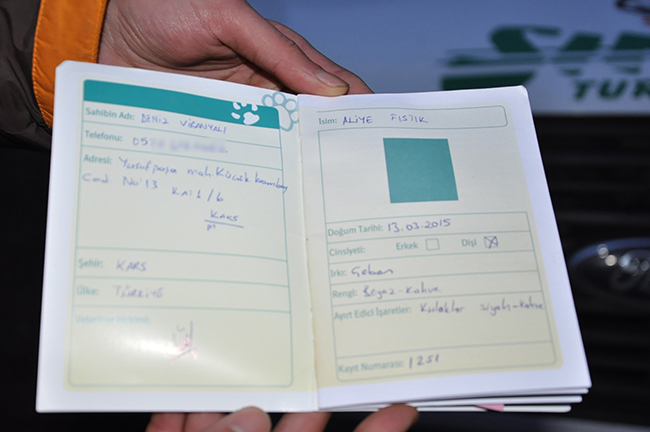 Sahibin Adı: DENİZ VİRANYALI
Telefonu: 05
Adresi: Yusufpaşa mah. Küçük kazımbey
Cad No:13 Kat:1/6
KARS
Şehir: KARS
Ülke: TÜRKİYE
İsim: ALİYE FISTIK
Doğum Tarihi: 13.03.2015
Cinsiyeti: Erkek Dişi
Irkı: Çoban
Rengi: Beyaz-Kahve
Ayırt Edici İşaretler: Kulaklar Siyah-Kahve
Kayıt Numarası: 1251